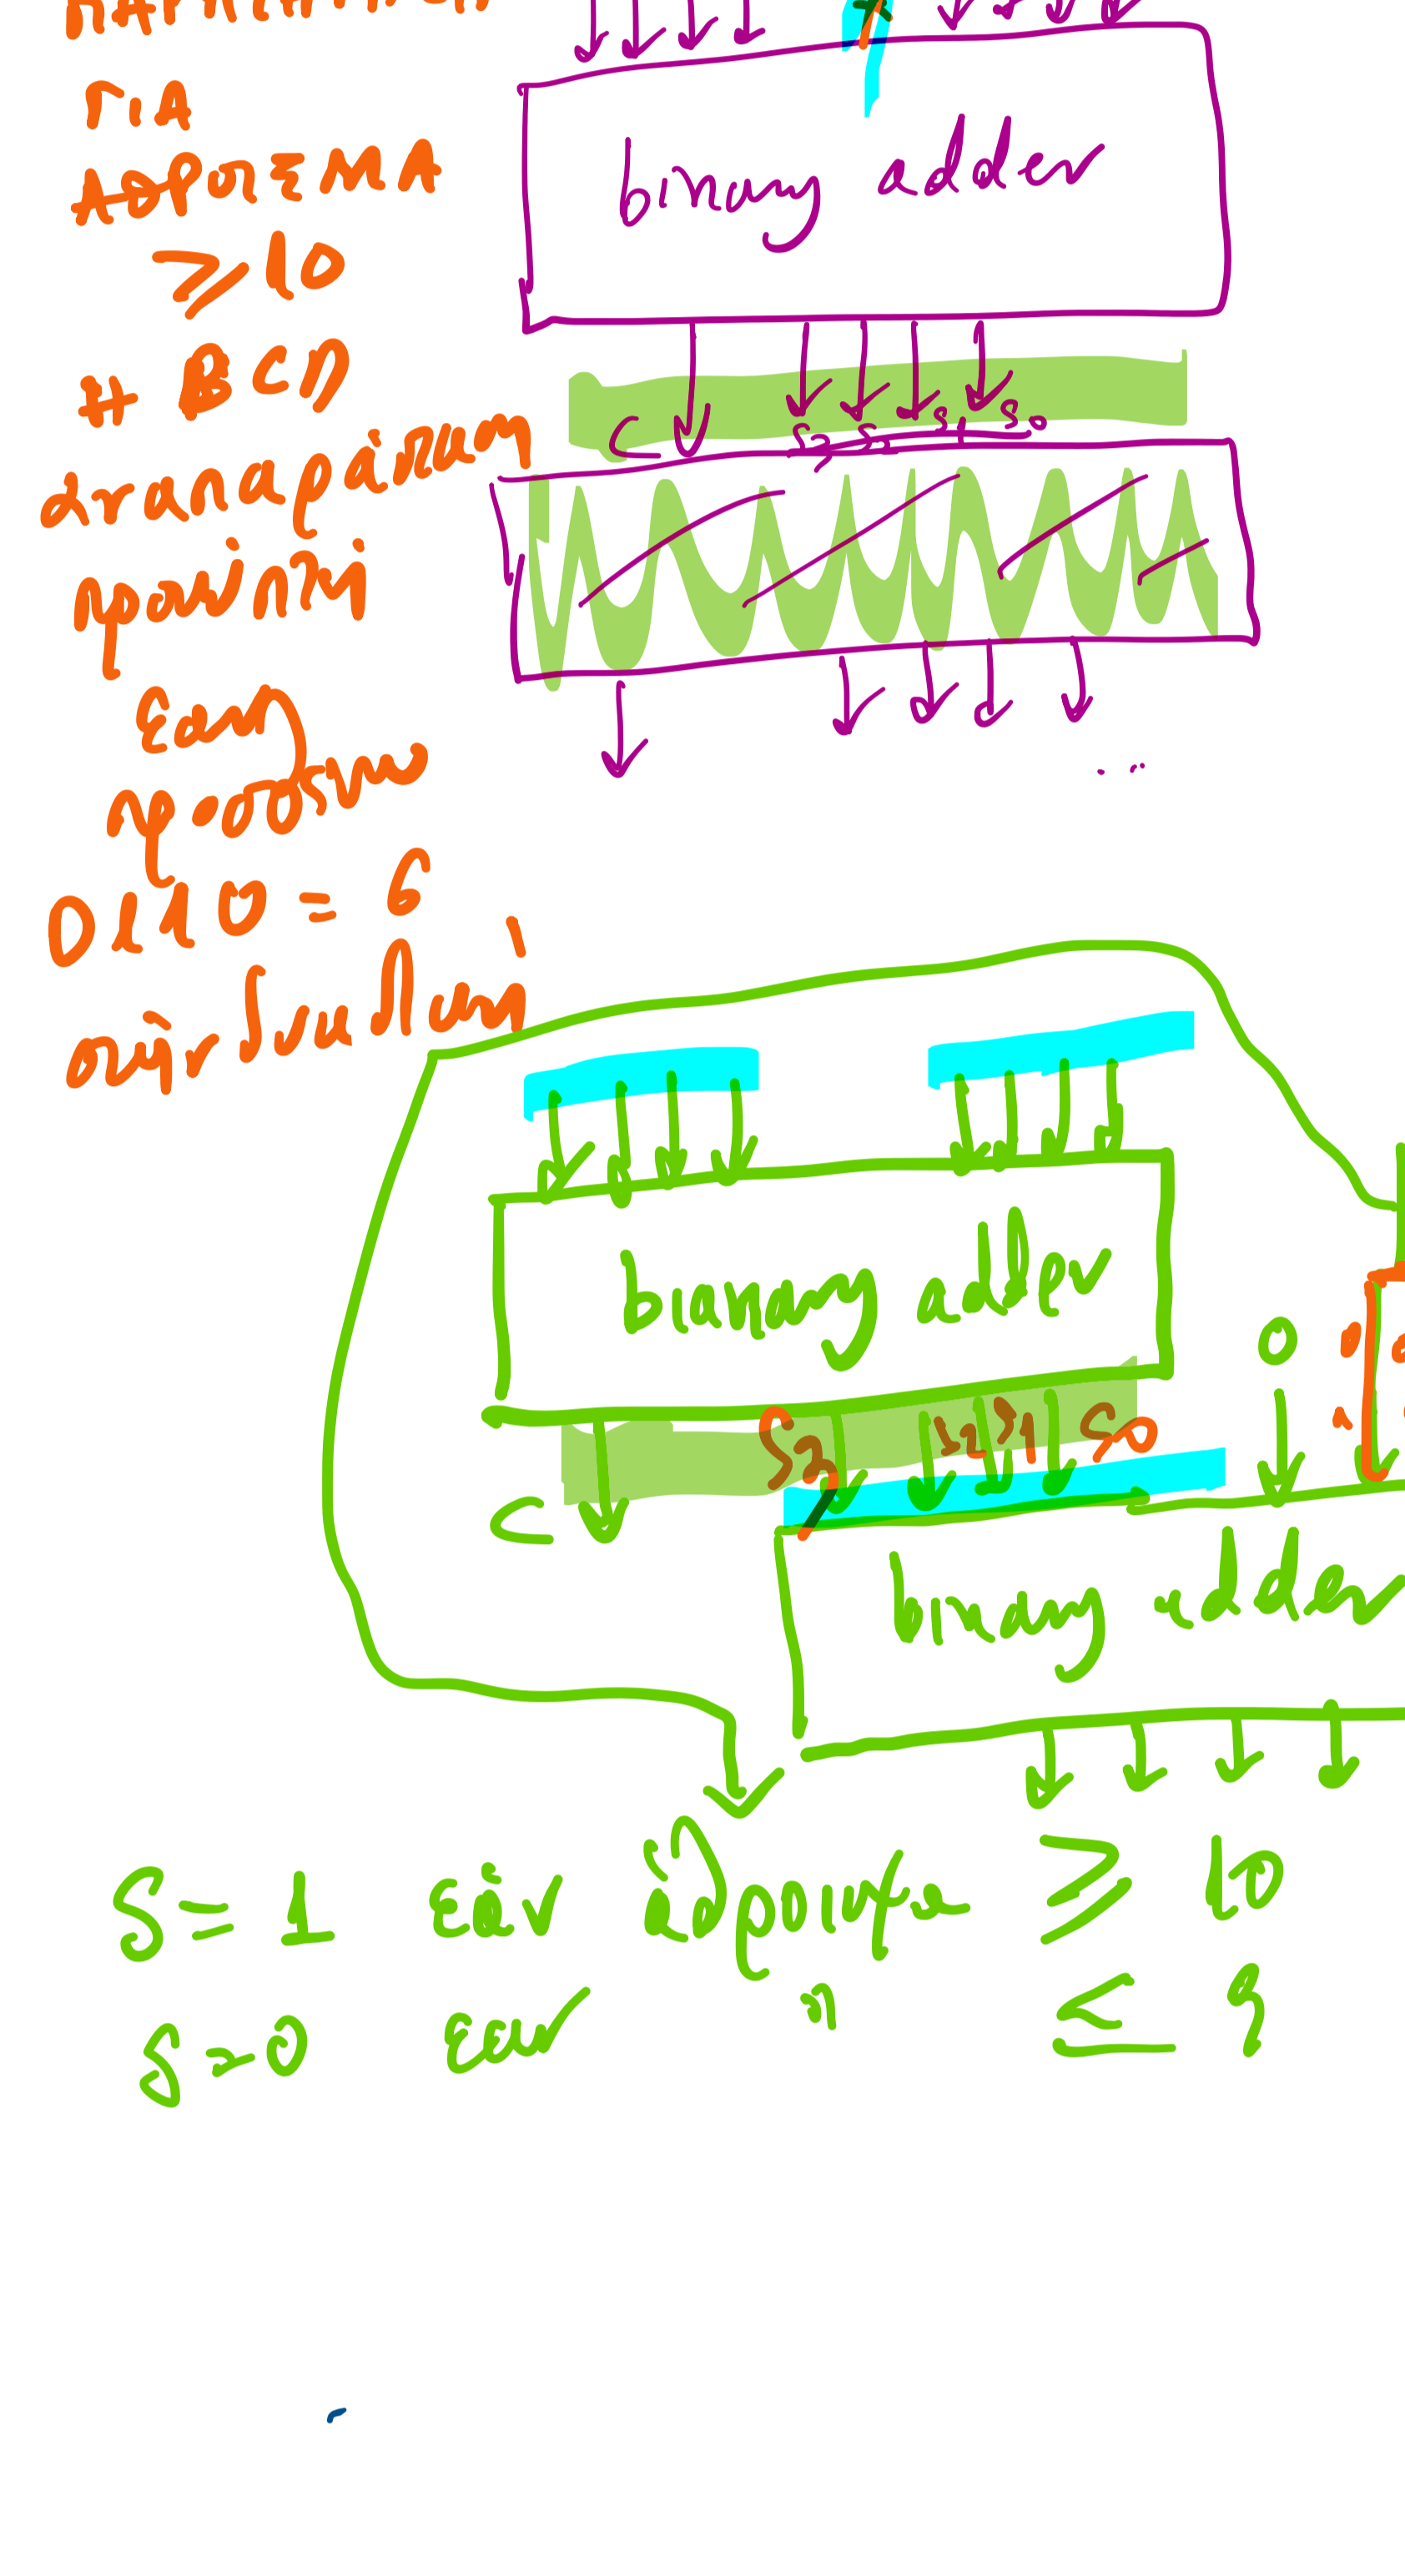 ΓΙΑ
ΑΘΡΟΙΣΜΑ
≥ 10
Η BCD
αναπαράσταση
προκύπτει
Εαν
προσθέσω
0110 = 6
στην δυαδική
binary adder
C S3 S2 S1 S0
...
bianary adder
C S3 S2 S1 S0
0
binary adder
S = 1 εάν άθροισμα ≥ 10
S = 0 εαν " ≤ 9